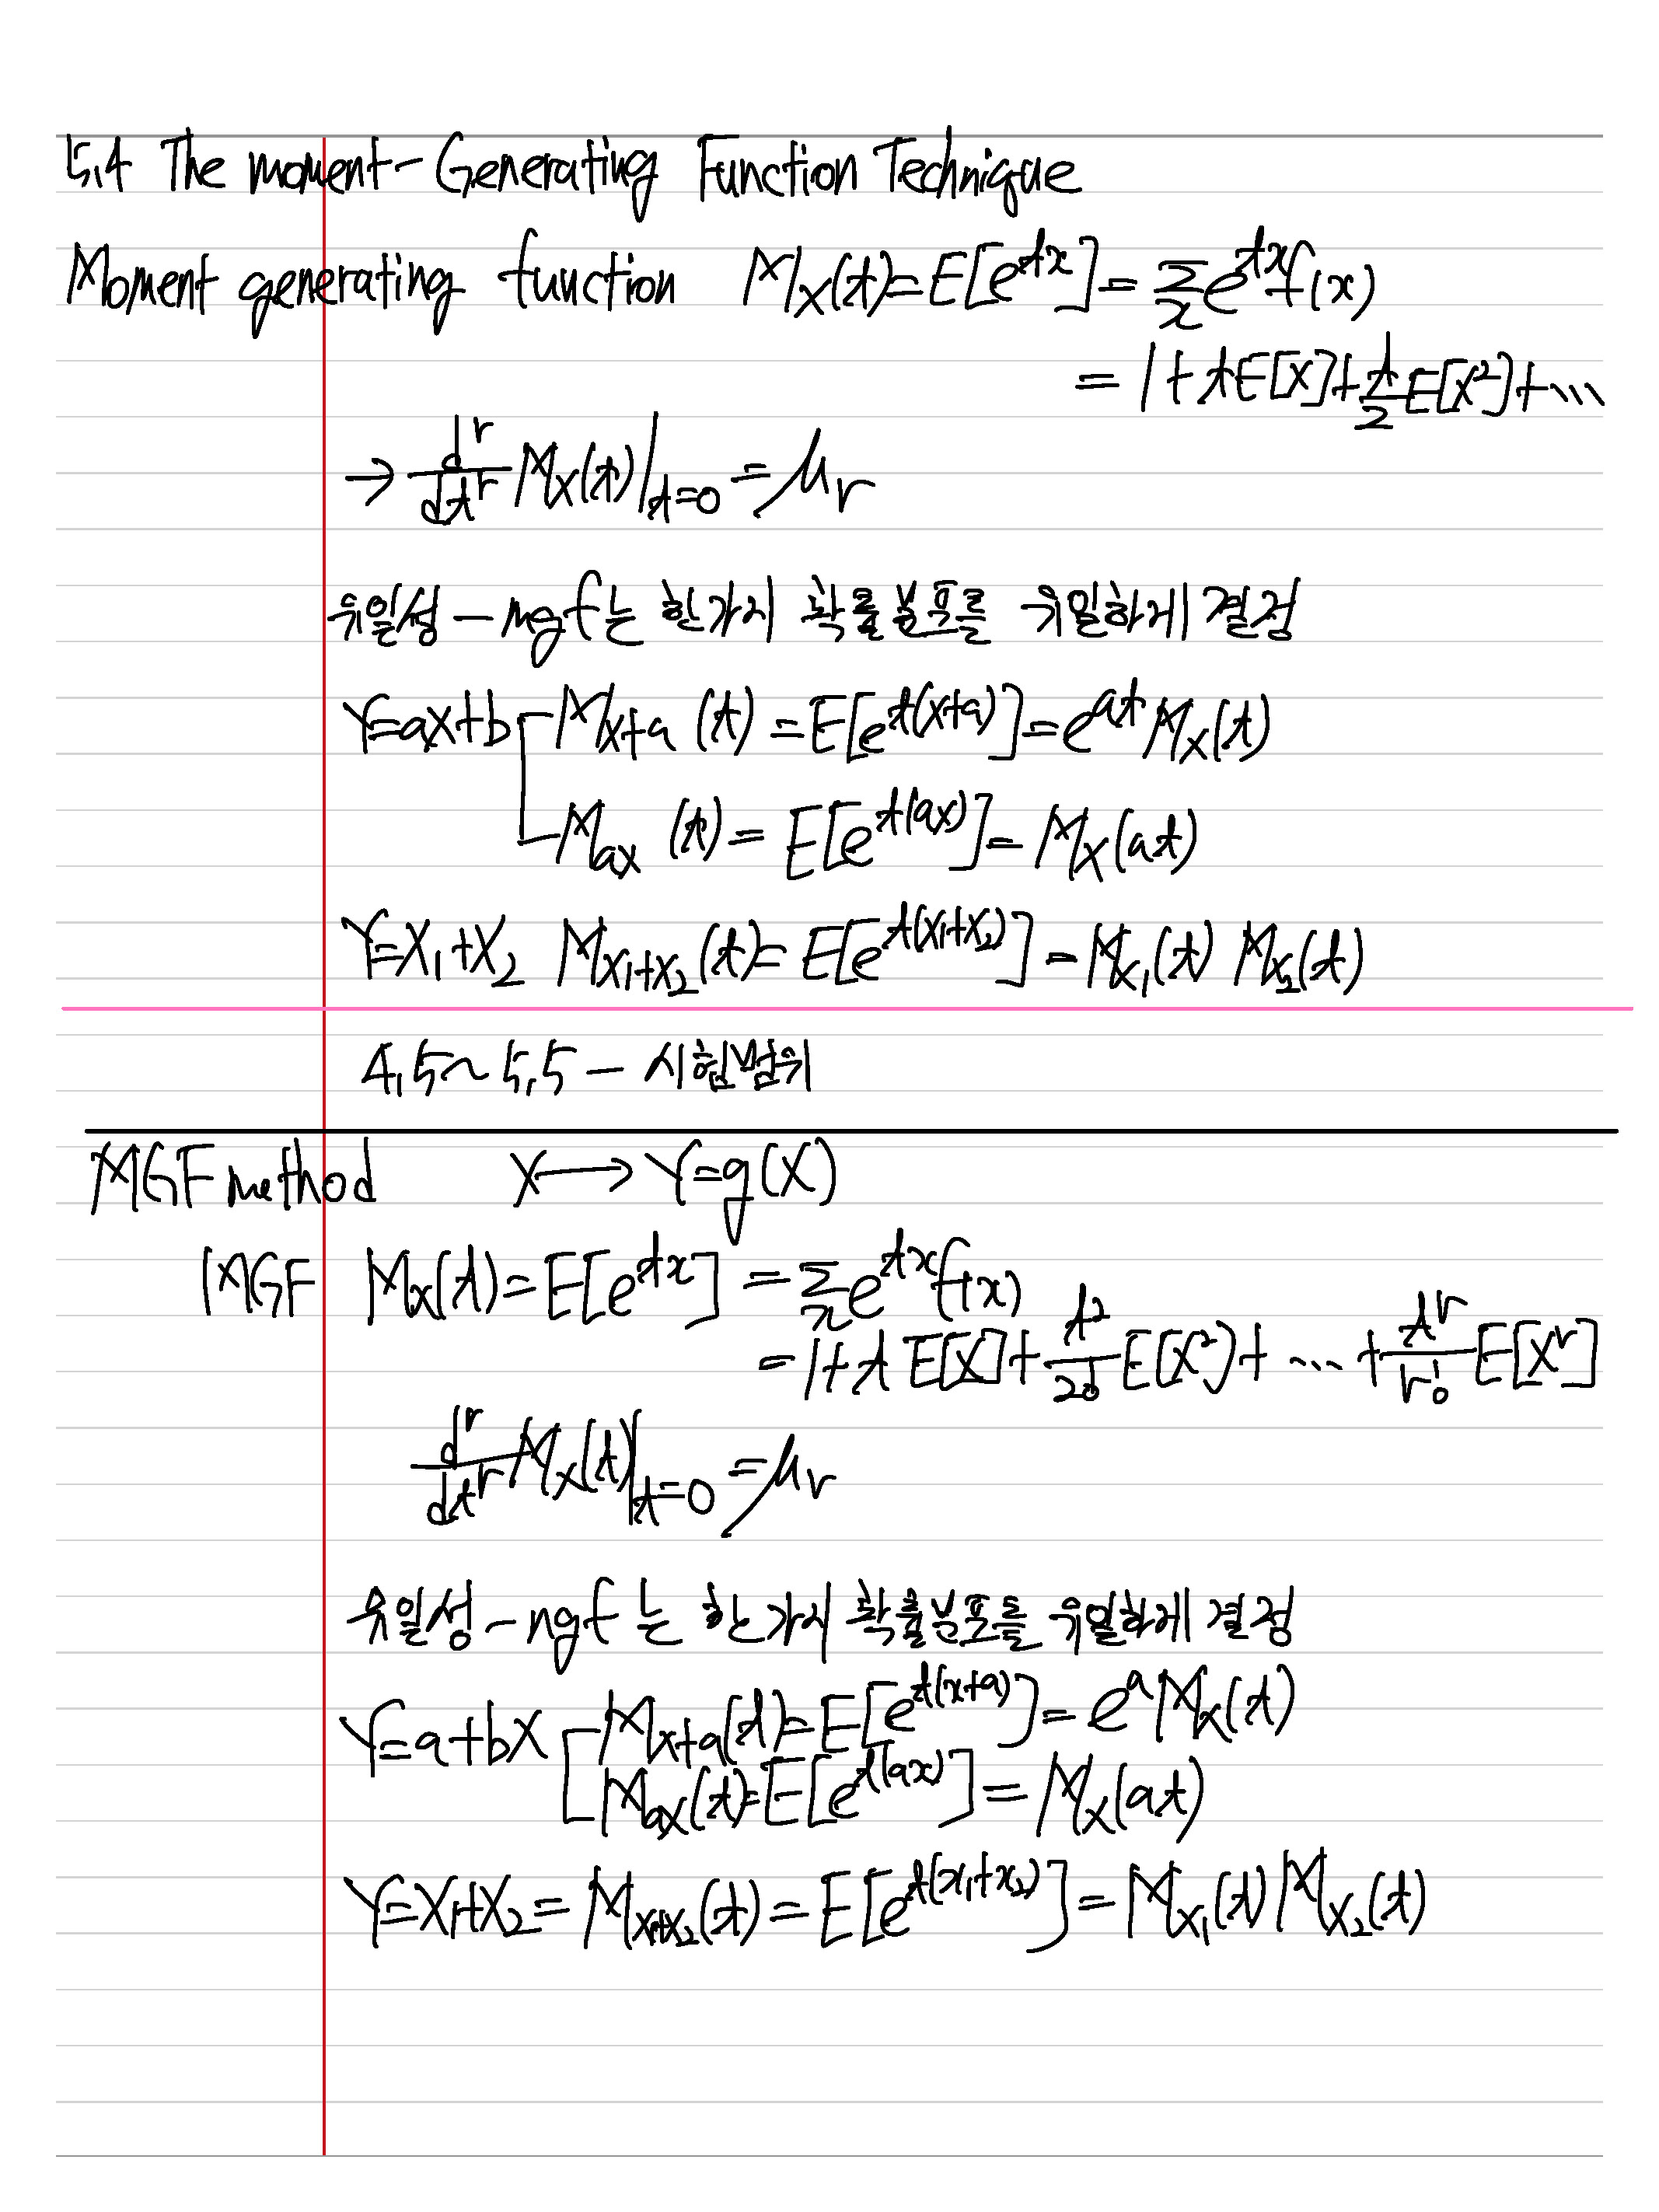 5.4 The moment-Generating Function Technique
Moment generating function M_X(t)=E[e^{tx}]=Σ_x e^{tx}f(x)
=1+tE[X]+t/2 E[X²]+⋯
→ d^r/dt^r M_X(t)|_{t=0}=μ_r
유일성-mgf는 한가지 확률분포를 유일하게 결정
Y=aX+b M_{X+a}(t)=E[e^{t(X+a)}]=e^{at}M_X(t)
M_{aX}(t)=E[e^{t(ax)}]=M_X(at)
Y=X₁+X₂ M_{X₁+X₂}(t)=E[e^{t(X₁+X₂)}]=M_{X₁}(t) M_{X₂}(t)
4.5~5.5-시험범위
MGF method X→Y=g(X)
MGF M_X(t)=E[e^{tx}]=Σ_x e^{tx}f(x)
=1+tE[X]+t²/2! E[X²]+⋯+t^r/r! E[X^r]
d^r/dt^r M_X(t)|_{t=0}=μ_r
유일성-mgf는 한가지 확률분포를 유일하게 결정
Y=a+bX M_{X+a}(t)=E[e^{t(x+a)}]=e^a M_X(t)
M_{aX}(t)=E[e^{t(ax)}]=M_X(at)
Y=X₁+X₂=M_{X₁+X₂}(t)=E[e^{t(x₁+x₂)}]=M_{X₁}(t)M_{X₂}(t)